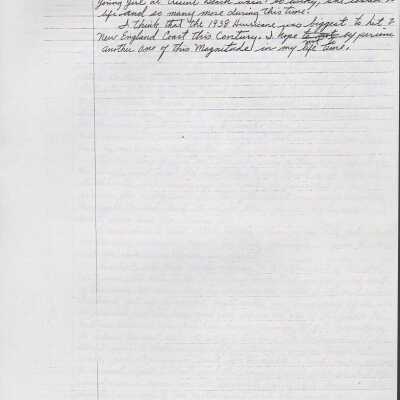 young girl at Crescent Beach wasn't so lucky, she
life and so many more during this time!
I think that the 1938 Hurricane was biggest to hit
New England Coast this Century. I hope to not experience
another one of this Magnitude in my life time.